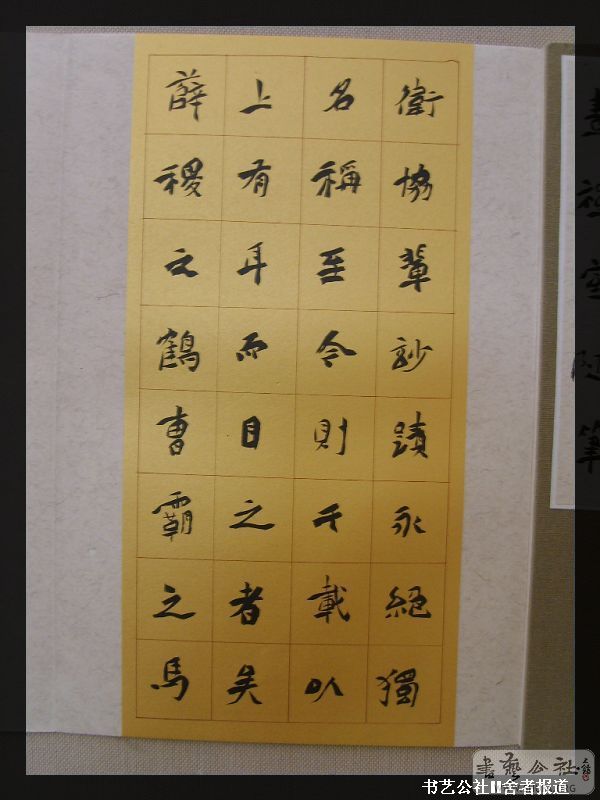 畫禪室隨筆
衛協輩玅蹟永絕獨
名稱至今則千載以
上有耳而目之者矣
薛稷之鶴曹霸之馬
書藝公社
书艺公社II舍者报道